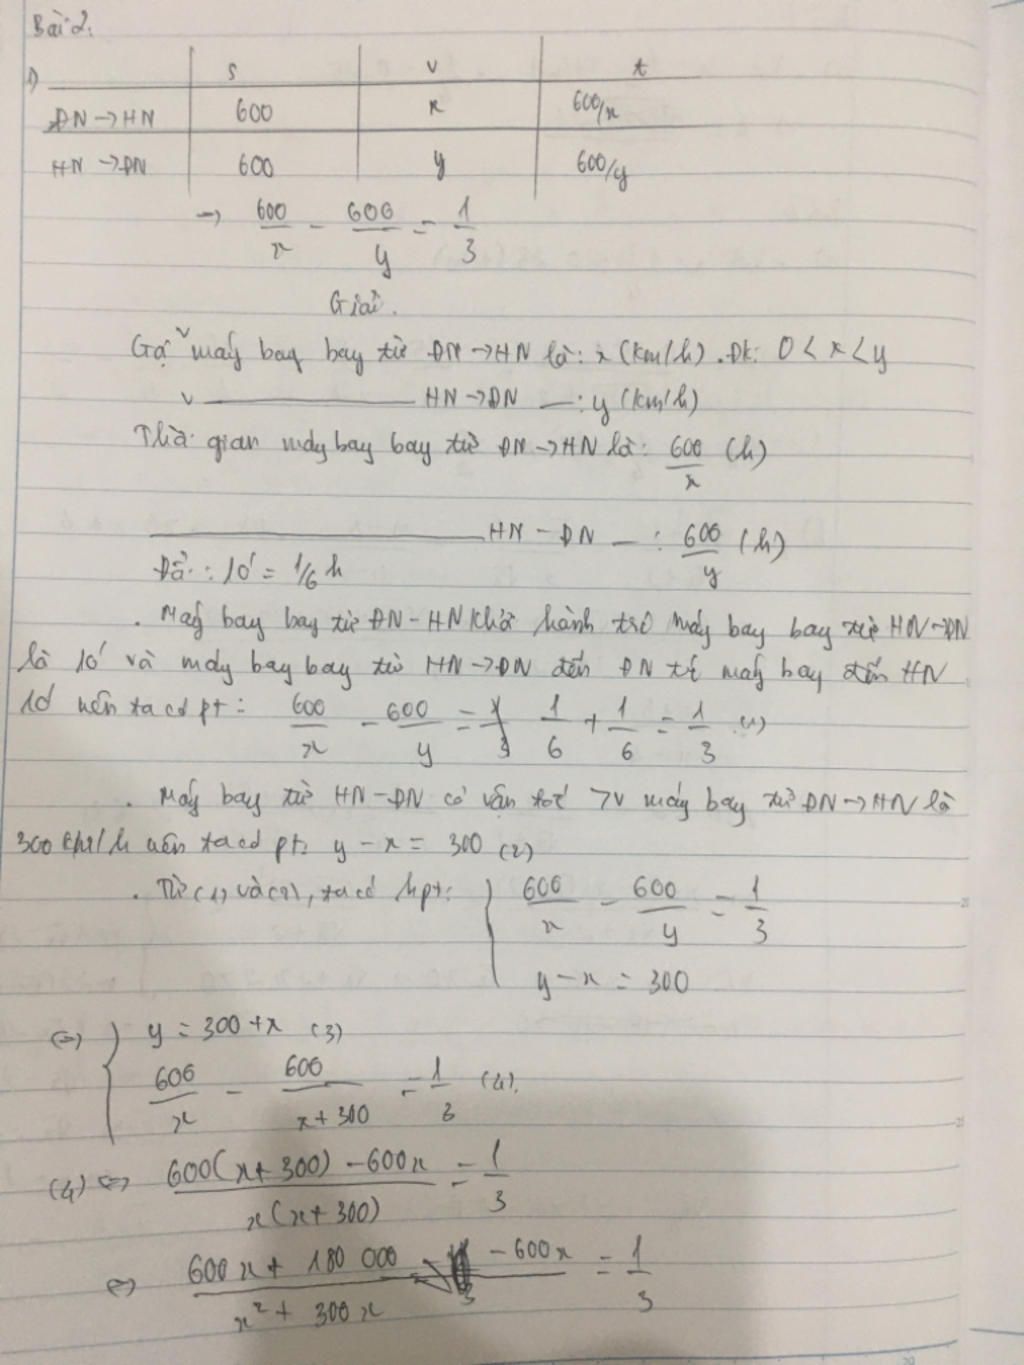 Bài 2:
1) s v t
ĐN → HN 600 x 600/x
HN → ĐN 600 y 600/y
→ 600/x - 600/y = 1/3
Giải.
Gọi v máy bay bay từ ĐN → HN là: x (km/h). Đk: 0 < x < y
v ——— HN → ĐN —: y (km/h)
Thời gian máy bay bay từ ĐN → HN là: 600/x (h)
——— HN - ĐN —: 600/y (h)
Đổi: 10' = 1/6 h
. Máy bay bay từ ĐN - HN khởi hành trc máy bay bay từ HN → ĐN
là 10' và máy bay bay từ HN → ĐN đến ĐN trc máy bay đến HN
10' nên ta có pt: 600/x - 600/y = 1/6 + 1/6 = 1/3 (1)
. Máy bay từ HN - ĐN có vận tốc > v máy bay từ ĐN → HN là
300 km/h nên ta có pt: y - x = 300 (2)
. Từ (1) và (2), ta có hpt: { 600/x - 600/y = 1/3
y - x = 300
⇔ { y = 300 + x (3)
600/x - 600/x+300 = 1/3 (4).
(4) ⇔ 600(x+300) - 600x / x(x+300) = 1/3
⇔ 600x + 180 000 - 600x / x² + 300x = 1/3